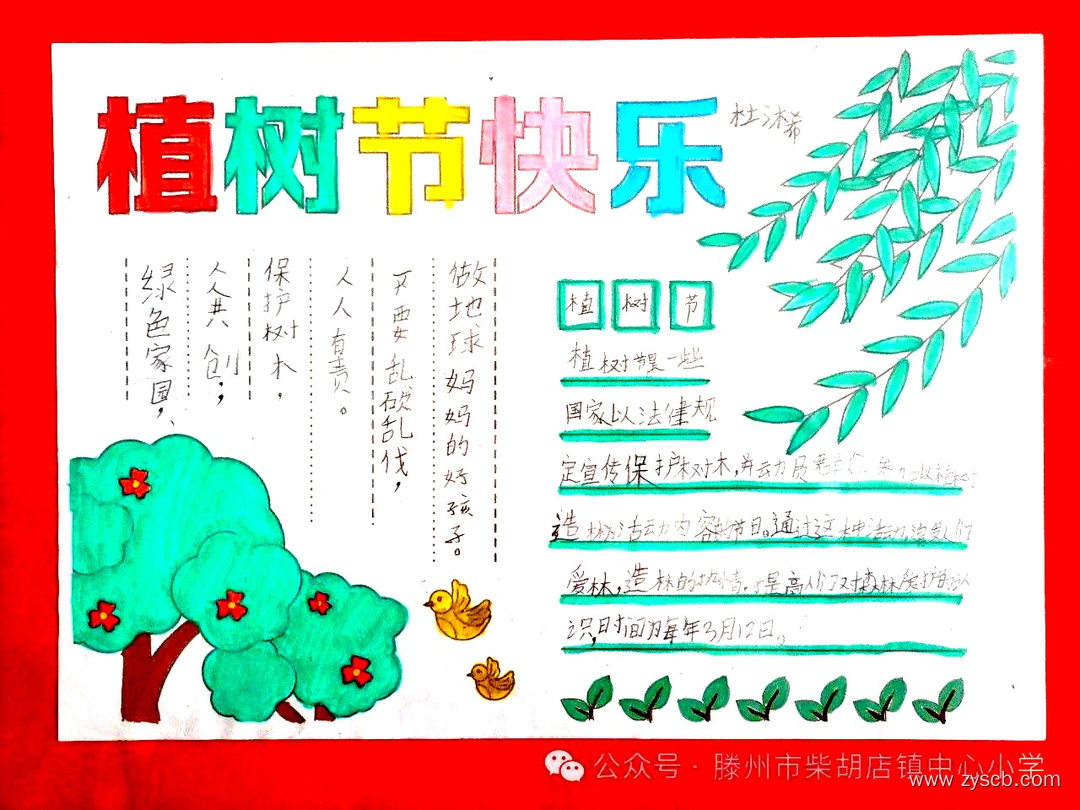 植树节快乐
杜沐希
绿色家园，
人人共创，
保护树木，
人人有责。
不要乱砍乱伐，
做地球妈妈的好孩子。
植树节
植树节是一些
国家以法律规
定宣传保护树木，并动员群众参加以植树
造林为活动内容的节日。通过这种活动激发人们
爱林，造林的热情，提高人们对森林爱护的认
识，时间为每年3月12日。
公众号·滕州市柴胡店镇中心小学
www.zyscb.com